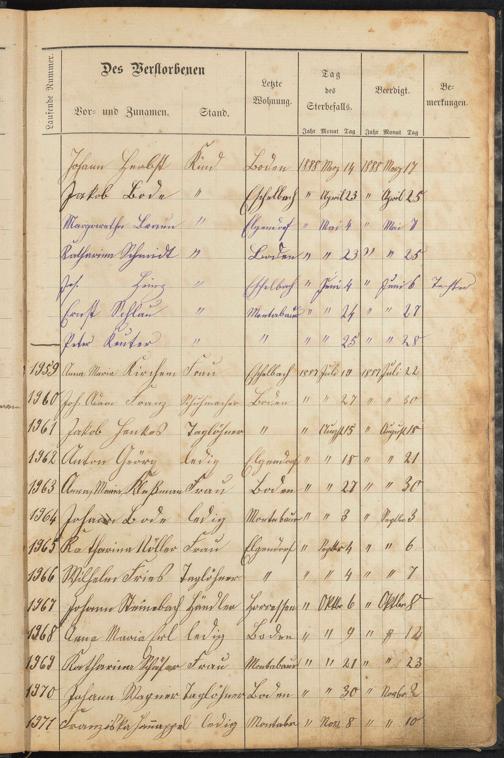 Laufende Nummer.
Des Verstorbenen
Vor- und Zunamen. Stand.
Letzte Wohnung.
Tag des Sterbefalls.
Beerdigt.
Be-merkungen.
Jahr Monat Tag Jahr Monat Tag
Johann Herbst Kind Boden 1888 März 14 1888 März 17
Jakob Bode " Eschelbach " April 23 " April 25
Margaretha Braun " Elgendorf " Mai 4 " Mai 7
Katharina Schmidt " Boden " " 23 " " 25
Jos. Hinz " Eschelbach " Juni 4 " Juni 6
Ernst Schlau " Montabaur " " 24 " " 27
Peter Reuter " " " " 25 " " 28
1959 Anna Maria Kirchem Frau Eschelbach 1887 Juli 19 1887 Juli 22
1960 Joh. Adam Franz Schuhmacher Boden " " 27 " " 30
1961 Jakob Henkes Taglöhner " " August 15 " August 18
1962 Anton Georg ledig Elgendorf " " 18 " " 21
1963 Anna Maria Frau Boden " " 27 " " 30
1964 Johann Bode ledig Montabaur " " 3 " Septbr 3
1965 Katharina Nöller Frau Elgendorf " Septbr 4 " " 6
1966 Wilhelm Fries Taglöhner " " " 4 " " 7
1967 Johann Steinebach Händler Horressen " Oktbr 6 " Oktbr 8
1968 Anna Maria ledig Boden " " 9 " " 12
1969 Katharina Frau Montabaur " " 21 " " 23
1970 Johann Wagner Taglöhner Boden " " 30 " Novbr 2
1971 Franziska ledig Montabr " Nov. 8 " " 10